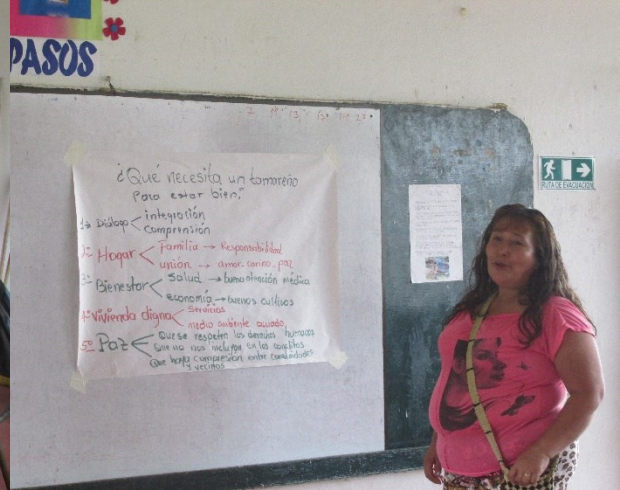 PASOS
¿Qué necesita un tamareño
Para estar bien?
1º Diálogo < integración
comprensión
2º Hogar < Familia → Responsabilidad
unión → amor. cariño. paz
3º Bienestar < Salud → buena atención médica
economía → buenos cultivos
4º Vivienda digna < Servicios
medio ambiente
5º Paz < Que se respeten los derechos humanos
Que no nos incluyan en los conflictos
Que haya compresión entre comunidades
y vecinos
RUTA DE EVACUACIÓN